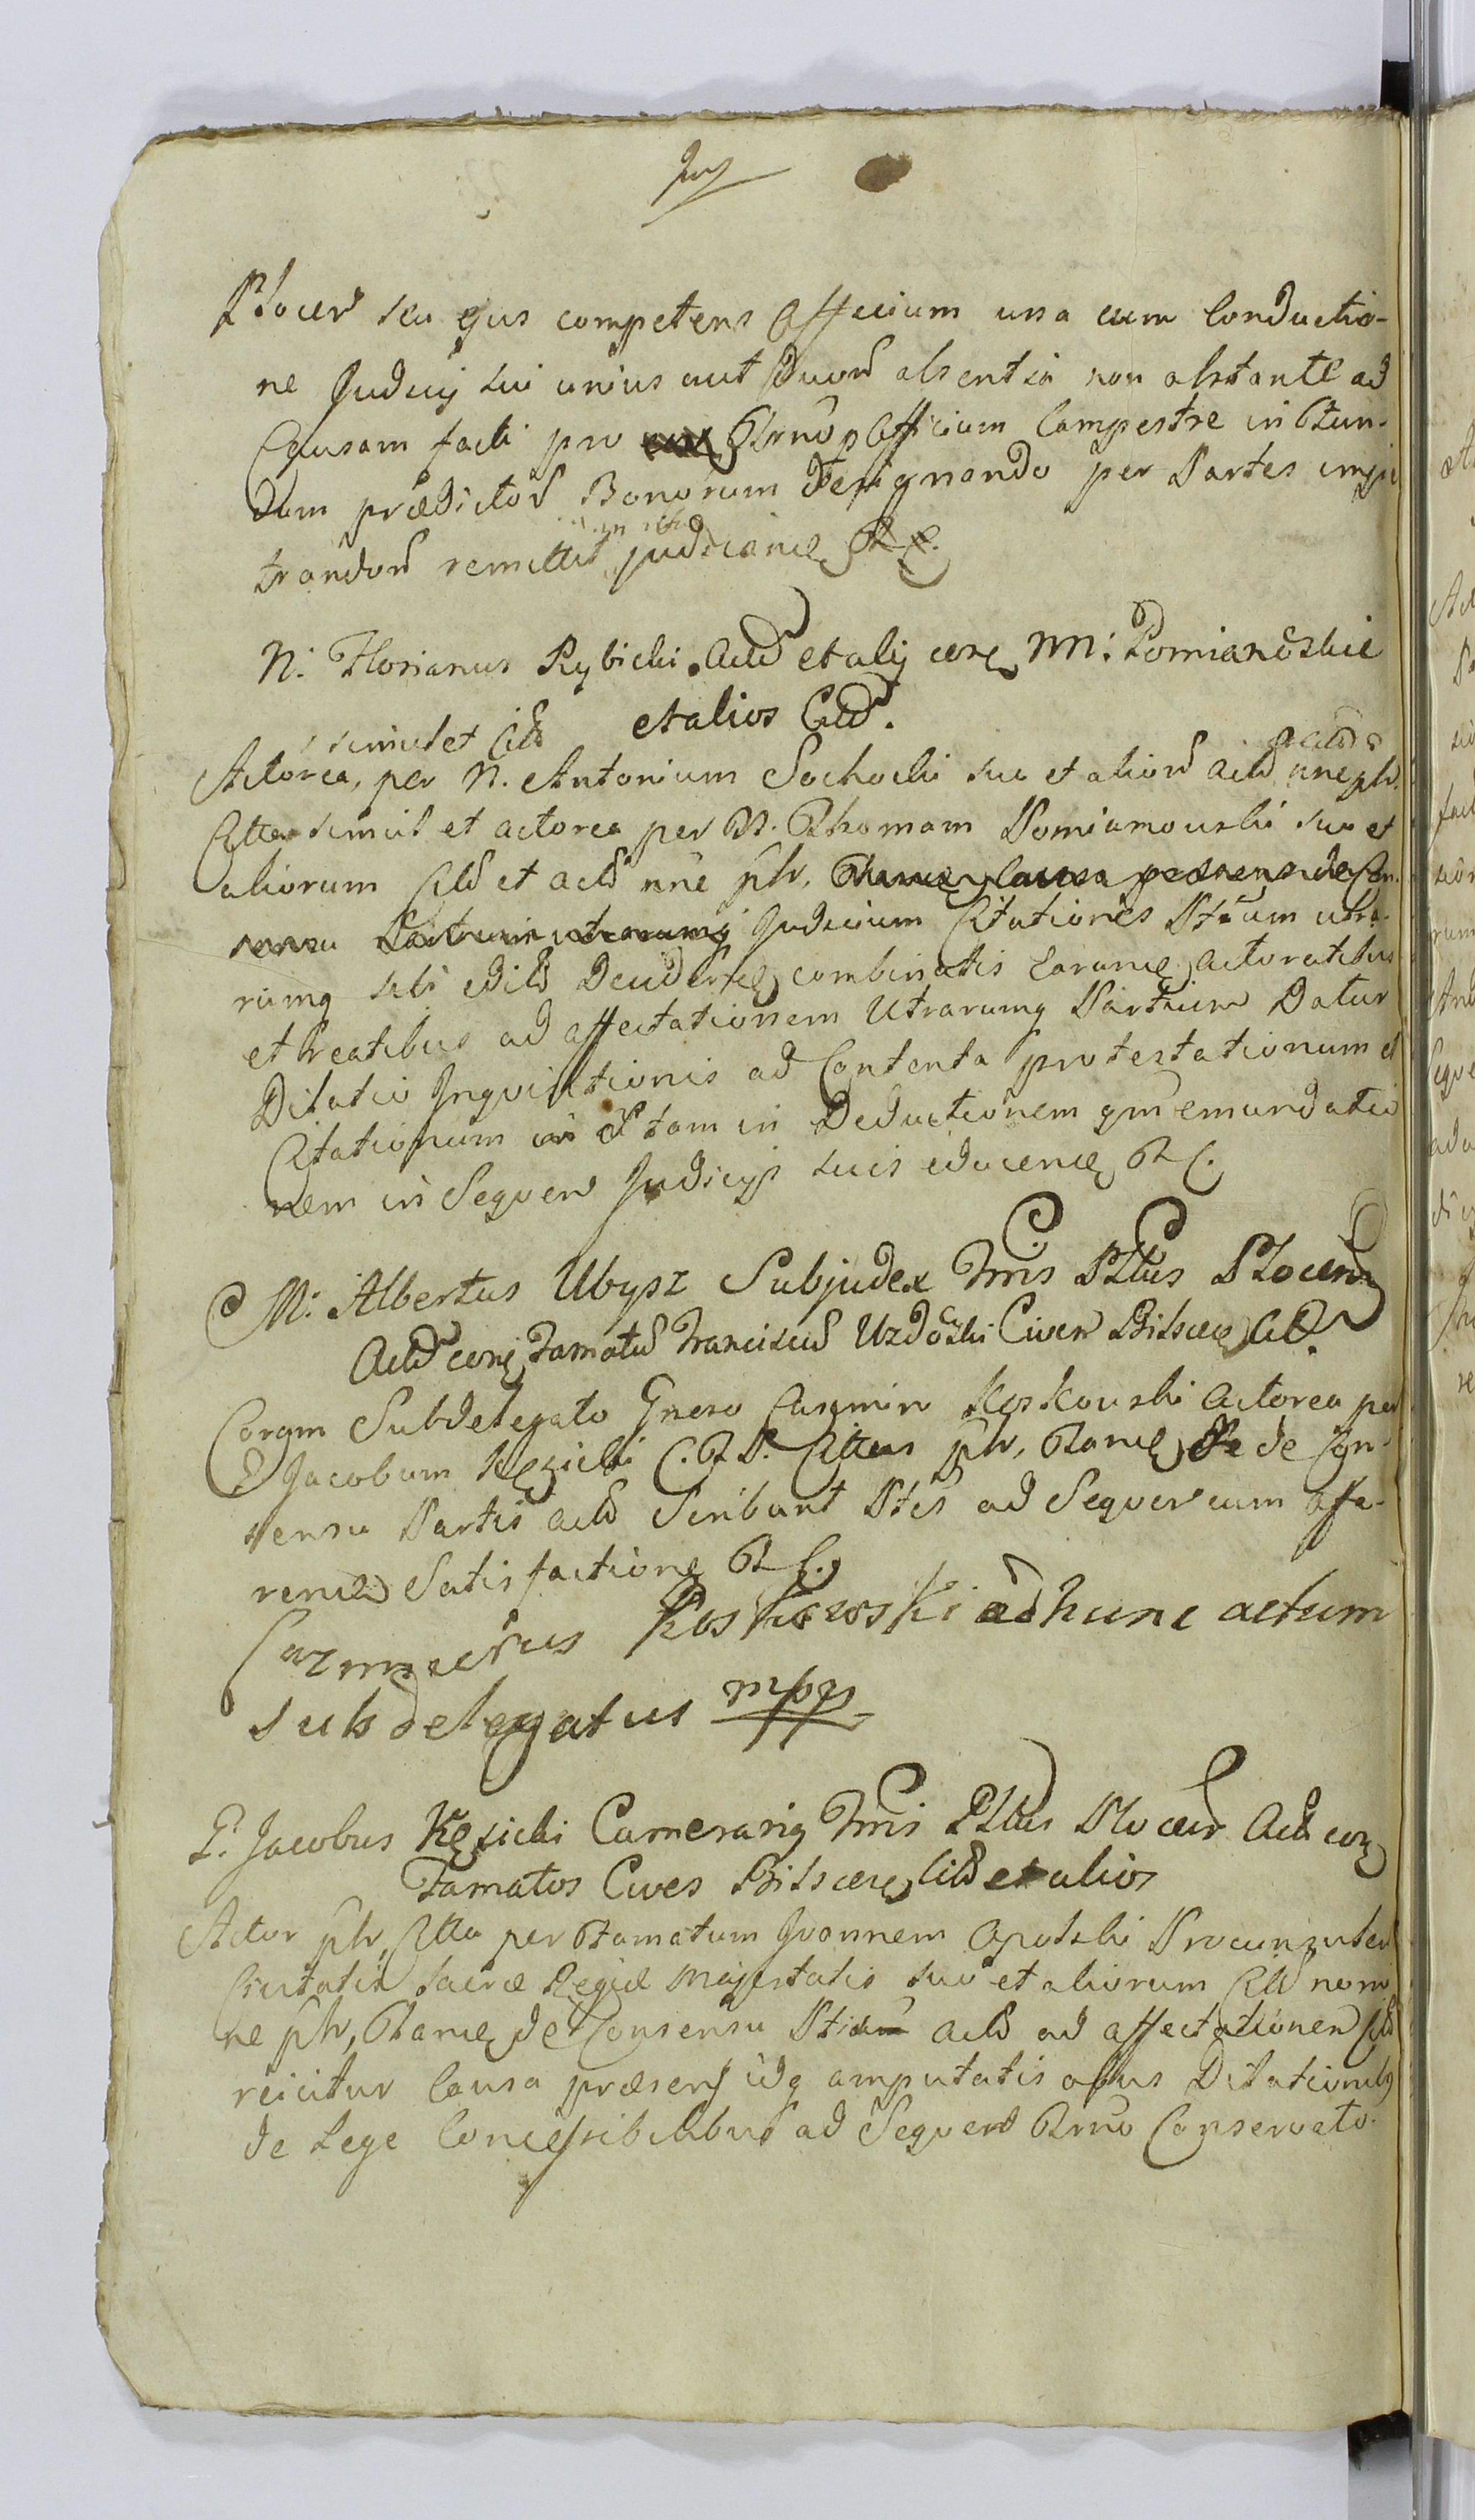 Plocen seu ejus competens Officium una cum Conductio-
ne Judicij sui unius aut duor absentia non obstante ad
Causam facti pro Trno p Officium Campestre in Fun-
dum prædictor Bonorum designando per Partes impe
trandor remittit judicience R C.
N. Florianus Rybicki Actr et alij core MM. Pomianoskie
et alios Cittr.
simul et Citt
Actorea, per N. Antonium Sochocki suo et alior actr nne plr.
Citta simul et actorea per N. Thomam Pomianouski suo et
aliorum Citt et actr nne plr.
Judicium Citationes Ptium utra-
rumq sibi edit combinatis earumq Actoratibus
et Reatibus ad affectationem Utrarumq Partium Datur
Dilatio Inquisitionis ad Contenta protestationum et
Citationum tam in Deductionem qm emundatio
nem in Sequen Judicijs suis educence R C.
M. Albertus Ubysz Subjudex Trris Pltus Plocen
Actr core Famatum Franciscum Uzdoski Civen Bilscen Citt.
Coram Subdelegato Gneso Casimiro Koskouski Actorea per
G Jacobum Kęsicki C. T. P. Cittus plr, Tance de Con-
sensu Partis actr Scribunt Ptes ad Sequen cum offe-
rence Satisfactione R C.
Cazimirus Koskowski ad hunc actum
subdelegatus mpp
G. Jacobus Kęsicki Camerariq Trris Pltus Plocen Actr core
Famatos Cives Bilscen Citt et alios
Actor plr, Citta per Famatum Joannem Opolski Proconsulem
Civitatis Sacræ Regiæ Majestatis suo et aliorum Citt nomi
ne plr, Tance de Consensu Ptis actr ad affectationem Citt
reicitur Causa præsens idq amputatis abus Dilationibq
de Lege Concessibilibus ad Sequen Trno Conservato.